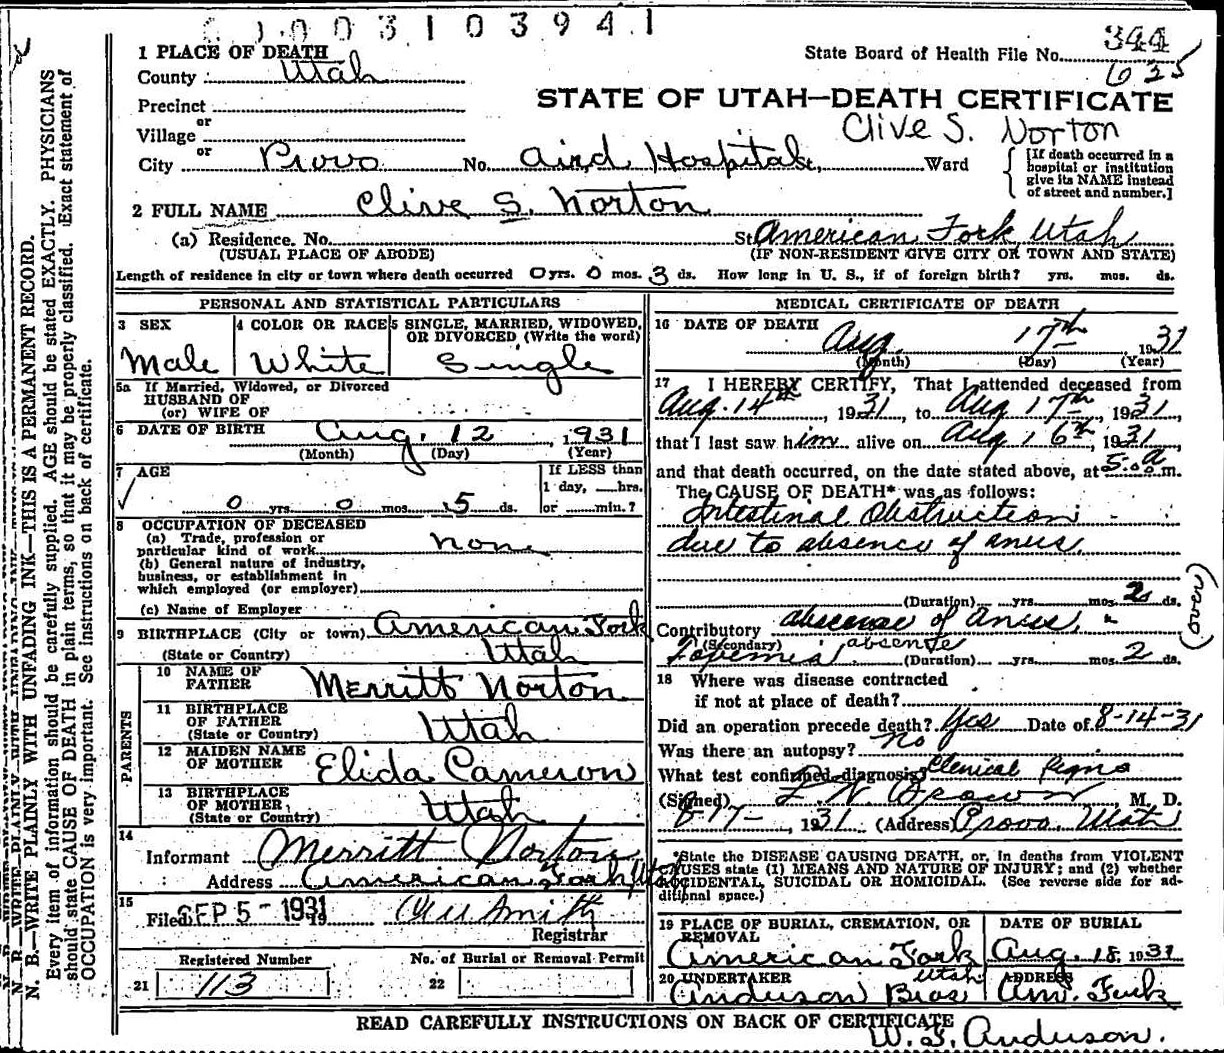 003103941
1 PLACE OF DEATH
State Board of Health File No. 344
County Utah
635
Precinct
STATE OF UTAH—DEATH CERTIFICATE
or
Village
Clive S. Norton
or
City Provo No. Aird Hospital, Ward
[If death occurred in a hospital or institution give its NAME instead of street and number.]
2 FULL NAME Clive S. Norton
(a) Residence. No. St. American Fork, Utah
(USUAL PLACE OF ABODE) (IF NON-RESIDENT GIVE CITY OR TOWN AND STATE)
Length of residence in city or town where death occurred 0 yrs. 0 mos. 3 ds. How long in U. S., if of foreign birth? yrs. mos. ds.
PERSONAL AND STATISTICAL PARTICULARS
3 SEX
Male
4 COLOR OR RACE
White
5 SINGLE, MARRIED, WIDOWED, OR DIVORCED (Write the word)
Single
5a If Married, Widowed, or Divorced
HUSBAND OF
(or) WIFE OF
6 DATE OF BIRTH Aug. 12, 1931
(Month) (Day) (Year)
7 AGE
If LESS than
1 day, ___hrs.
0 yrs. 0 mos. 5 ds. or ___min.?
8 OCCUPATION OF DECEASED
(a) Trade, profession or
particular kind of work none
(b) General nature of industry,
business, or establishment in
which employed (or employer)
(c) Name of Employer
9 BIRTHPLACE (City or town) American Fork
(State or Country) Utah
PARENTS
10 NAME OF FATHER Merritt Norton
11 BIRTHPLACE OF FATHER Utah
(State or Country)
12 MAIDEN NAME OF MOTHER Elida Cameron
13 BIRTHPLACE OF MOTHER Utah
(State or Country)
14
Informant Merritt Norton
Address American Fork, Utah
15
Filed SEP 5 - 1931 19
Smith
Registrar
Registered Number
21 113
No. of Burial or Removal Permit
22
MEDICAL CERTIFICATE OF DEATH
16 DATE OF DEATH
Aug. 17th 1931
(Month) (Day) (Year)
17 I HEREBY CERTIFY, That I attended deceased from
Aug. 14th, 1931, to Aug 17th, 1931,
that I last saw him alive on Aug 16th, 1931
and that death occurred, on the date stated above, at 5.. a m.
The CAUSE OF DEATH* was as follows:
Intestinal Obstruction
due to absence of anus.
(Duration) yrs. mos. 2 ds.
Contributory absense of Anus,
(Secondary) absente
(Duration) yrs. mos. 2 ds.
(over)
18 Where was disease contracted
if not at place of death?
Did an operation precede death? Yes Date of 8-14-31
Was there an autopsy? No
What test confirmed diagnosis? Clenical signs
(Signed) L. W. Brown M. D.
8-17-, 1931 (Address) Provo, Utah
*State the DISEASE CAUSING DEATH, or, in deaths from VIOLENT
CAUSES state (1) MEANS AND NATURE OF INJURY; and (2) whether
ACCIDENTAL, SUICIDAL OR HOMICIDAL. (See reverse side for ad-
ditional space.)
19 PLACE OF BURIAL, CREMATION, OR REMOVAL
American Fork
Utah
DATE OF BURIAL
Aug. 18, 1931
20 UNDERTAKER
Anderson Bros
ADDRESS
Am. Fork
READ CAREFULLY INSTRUCTIONS ON BACK OF CERTIFICATE
W. F. Anderson.
N. B.—WRITE PLAINLY WITH UNFADING INK—THIS IS A PERMANENT RECORD.
Every item of information should be carefully supplied. AGE should be stated EXACTLY. PHYSICIANS
should state CAUSE OF DEATH in plain terms, so that it may be properly classified. Exact statement of
OCCUPATION is very important. See instructions on back of certificate.